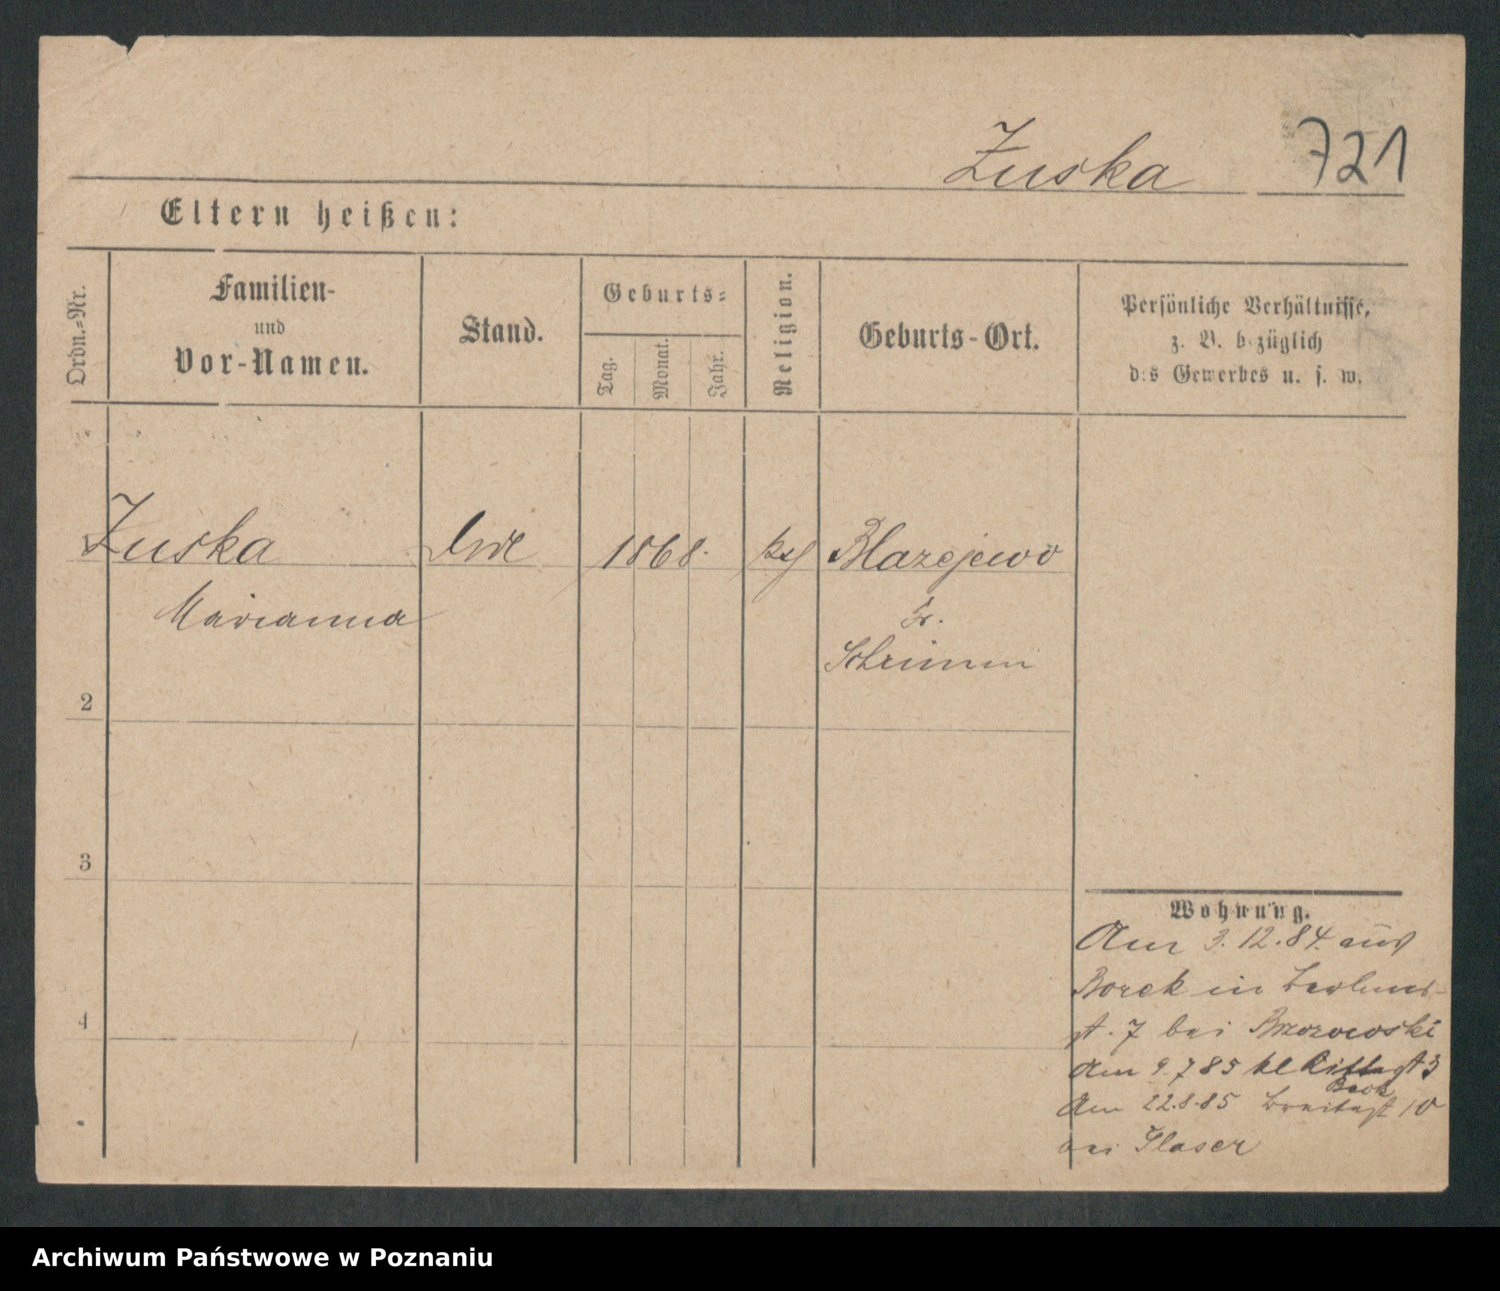 Zuska 721
Eltern heißen:
Ordn.=Nr.
Familien-
und
Vor-Namen.
Stand.
Geburts=
Tag.
Monat.
Jahr.
Religion.
Geburts-Ort.
Persönliche Verhältnisse,
z. B. bezüglich
des Gewerbes u. s. w.
Zuska 1868. Blazejewo
Marianna Kr.
Schrimm
2
3
4
Wohnung.
Am 3.12.84. aus
Borek in
st. 7 bei Brzozowski
Am 9.7 85 kl Ritterst 3
Am 22.8.85 Breitest 10
bei Flaser
Archiwum Państwowe w Poznaniu